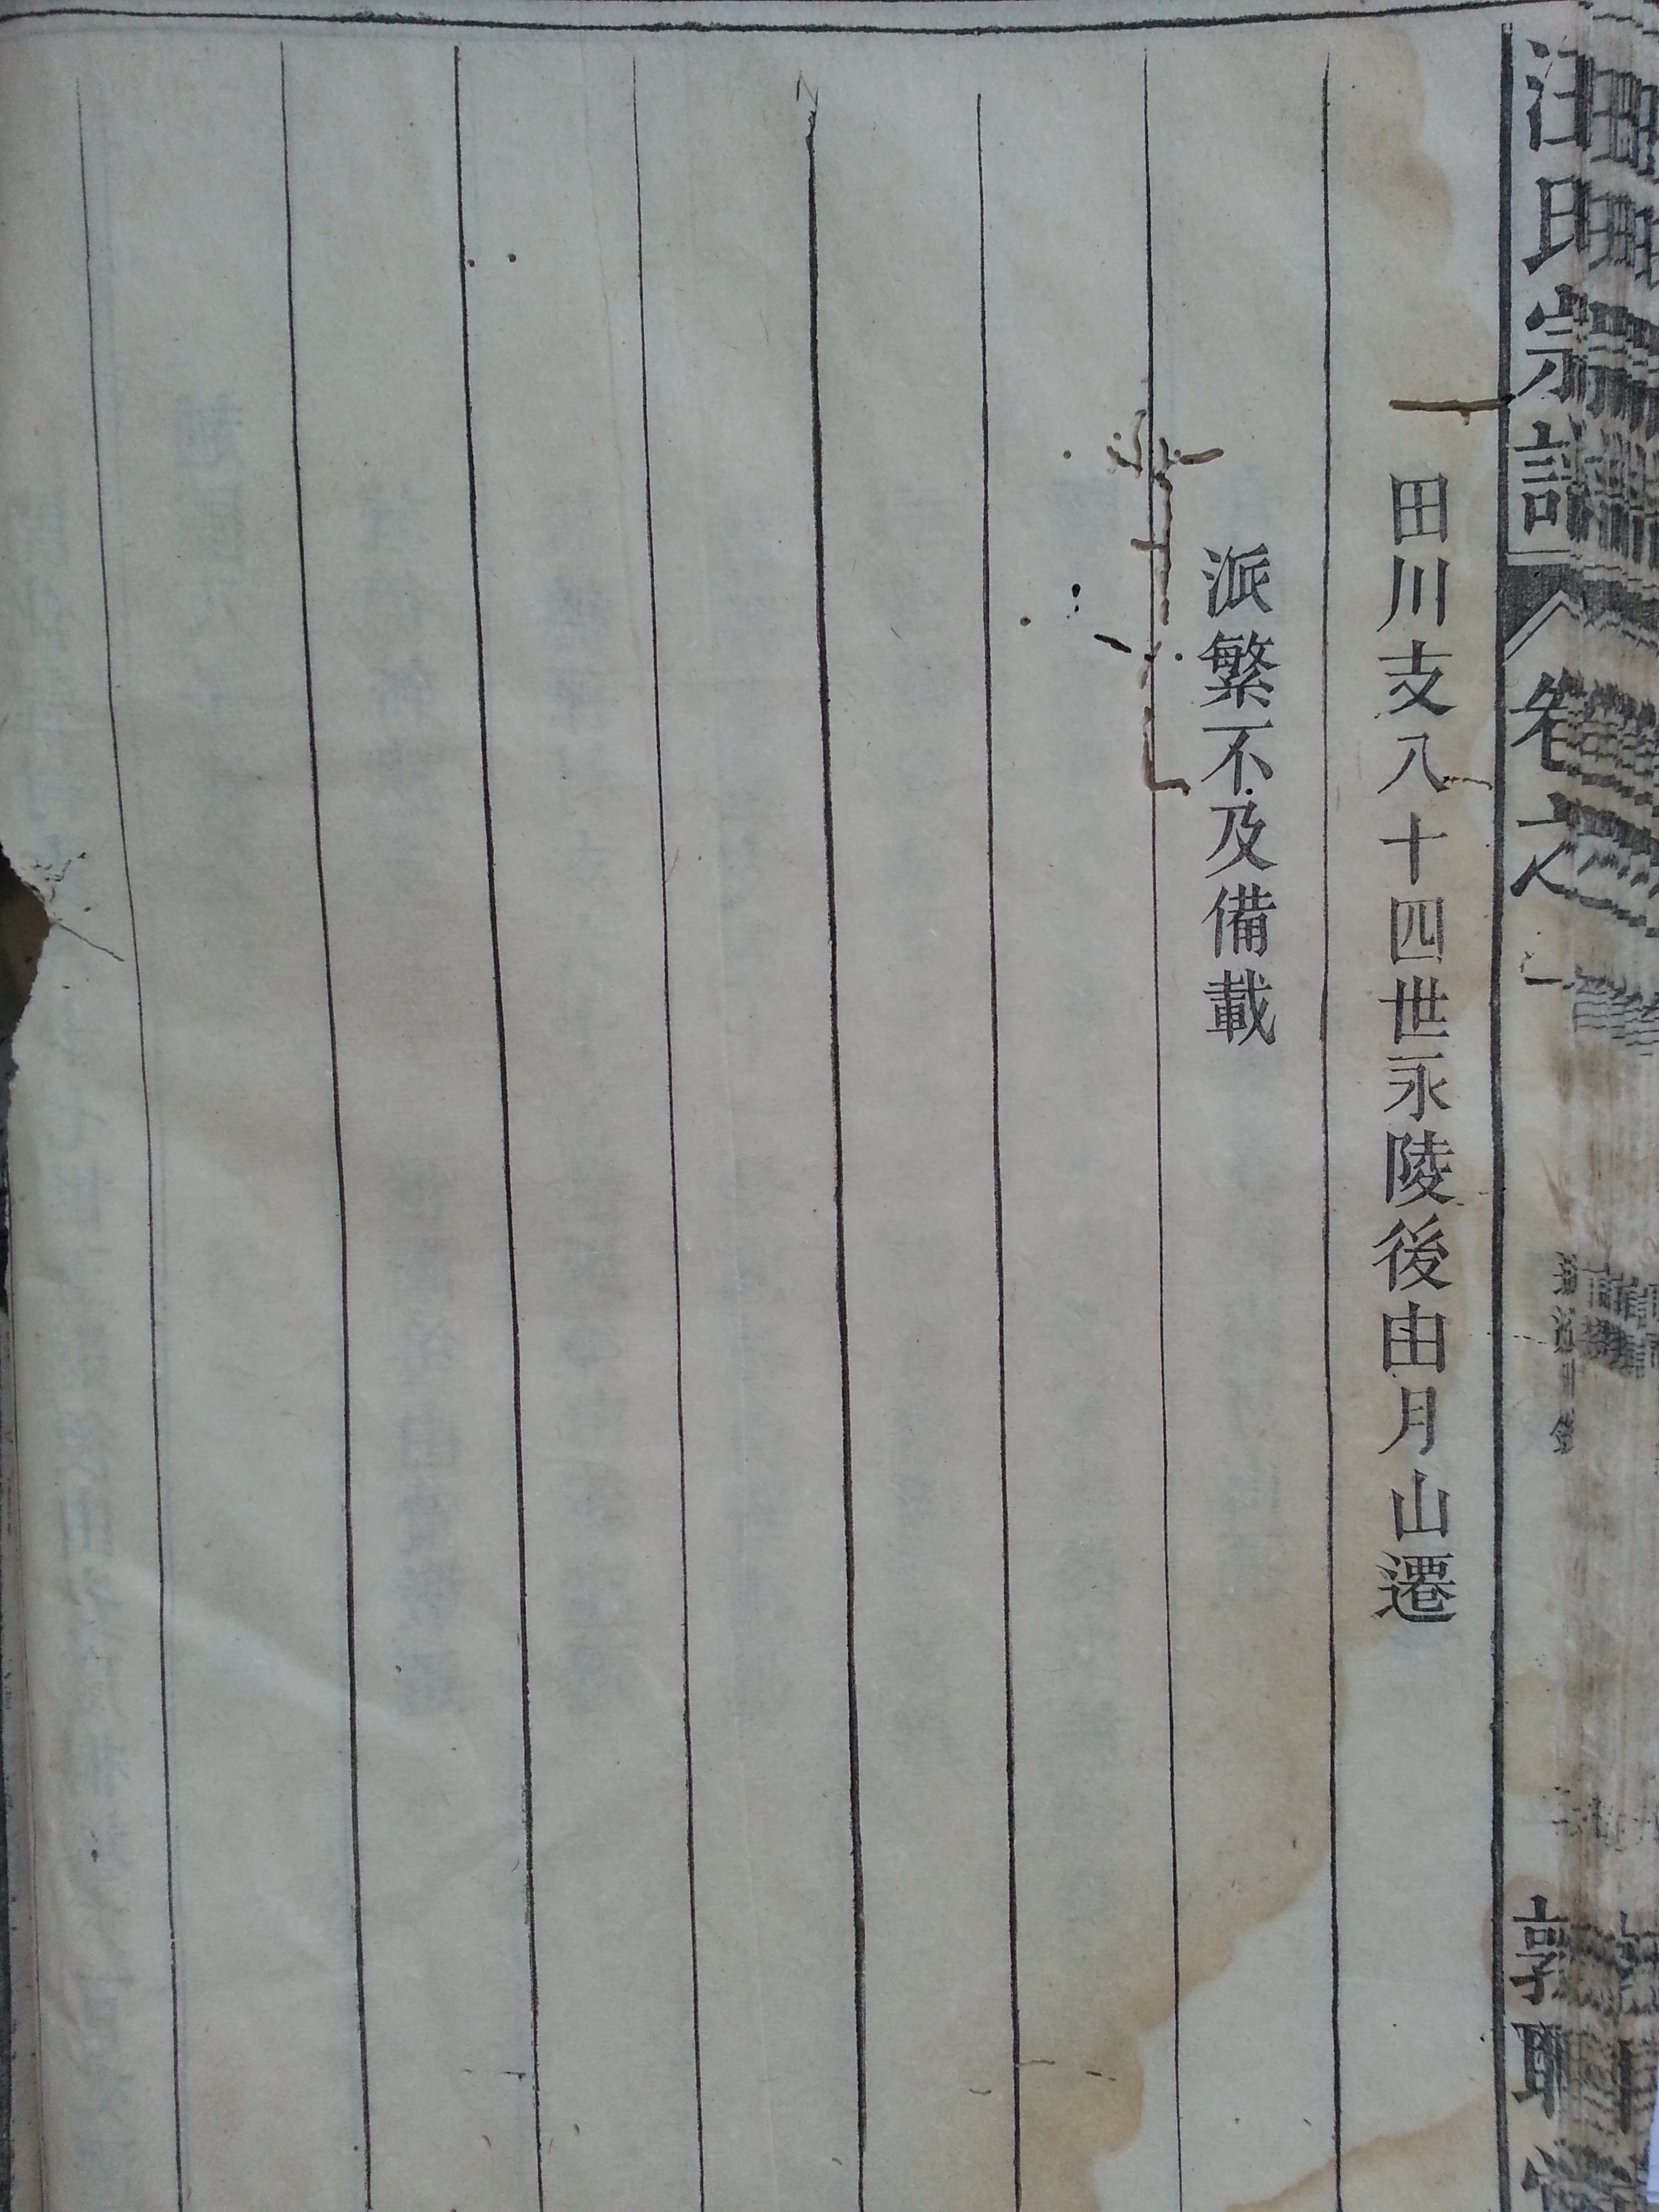 汪氏宗譜
卷之一
敦睦堂
田川支八十四世永陵後由月山遷
派繁不及備載